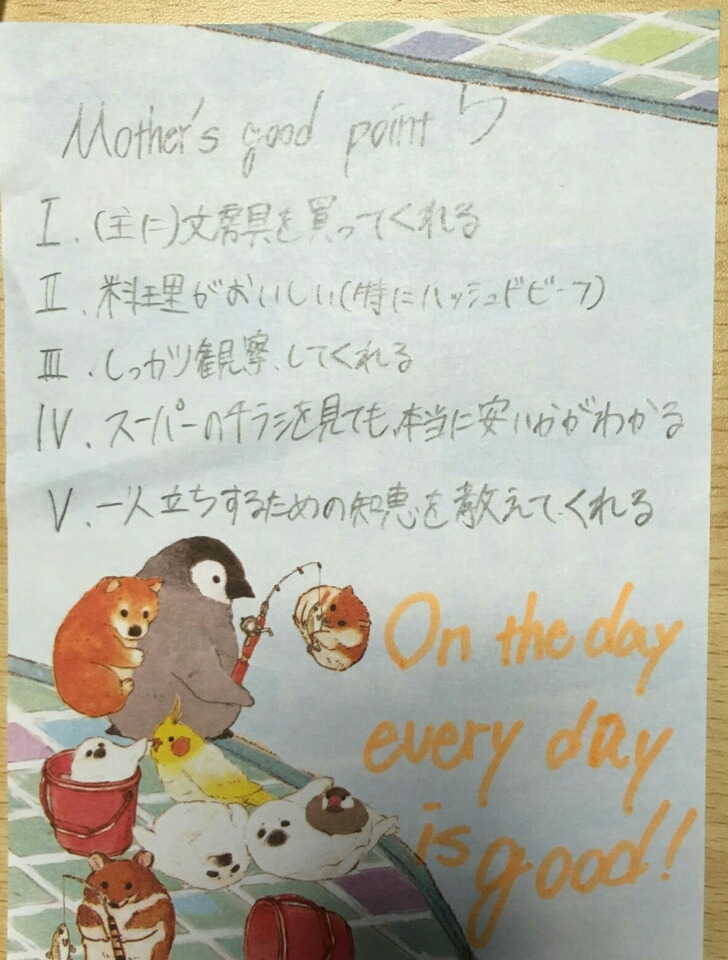 Mother's good point 5
I. (主に)文房具を買ってくれる
II. 料理がおいしい(特にハッシュドビーフ)
III. しっかり観察してくれる
IV. スーパーのチラシを見ても、本当に安いかがわかる
V. 一人立ちするための知恵を教えてくれる
On the day
every day
is good!